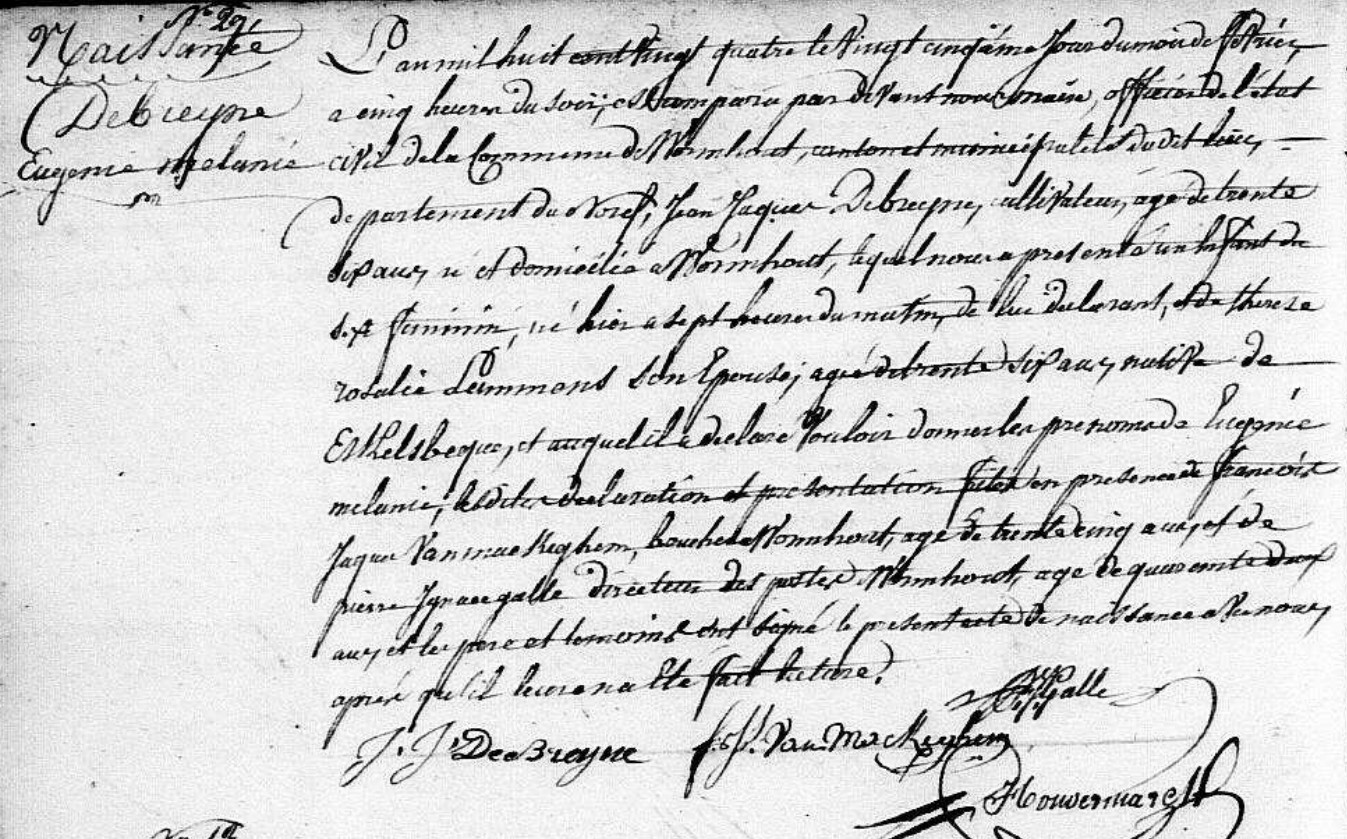 N° 29
Naissance
Debreyne
Eugenie melanie
L'an mil huit cent vingt quatre le vingt cinqième jour du mois de février,
a cinq heures du soir, est comparu par devant nous maire, officier de l'état
civil de la Commune de Wormhout, canton et municipalité du dit lieu,
departement du Nord, Jean Jaques Debreyne, cultivateur, agé de trente
six ans, né et domicilié a Wormhout, lequel nous a presenté un enfant du
sexe feminin, né hier a sept heures du matin, de lui declarant, et de therese
rosalie Lammens son Epouse, agée de trente six ans, native de
Ekelsbeque, et auquel il a declaré vouloir donner les prenoms de Eugenie
melanie, lesdites declaration et presentation faites en presence de francois
Jaques Vanmackeghem, boucher a Wormhout, agé de trente cinq ans, et de
pierre Ignace galle directeur des postes a Wormhout, agé de quarante deux
ans, et les pere et temoins ont signé le present acte de naissance avec nous,
après qu'il leur en a été fait lecture.
Galle
J. J. DeBreyne Van Mackeghem